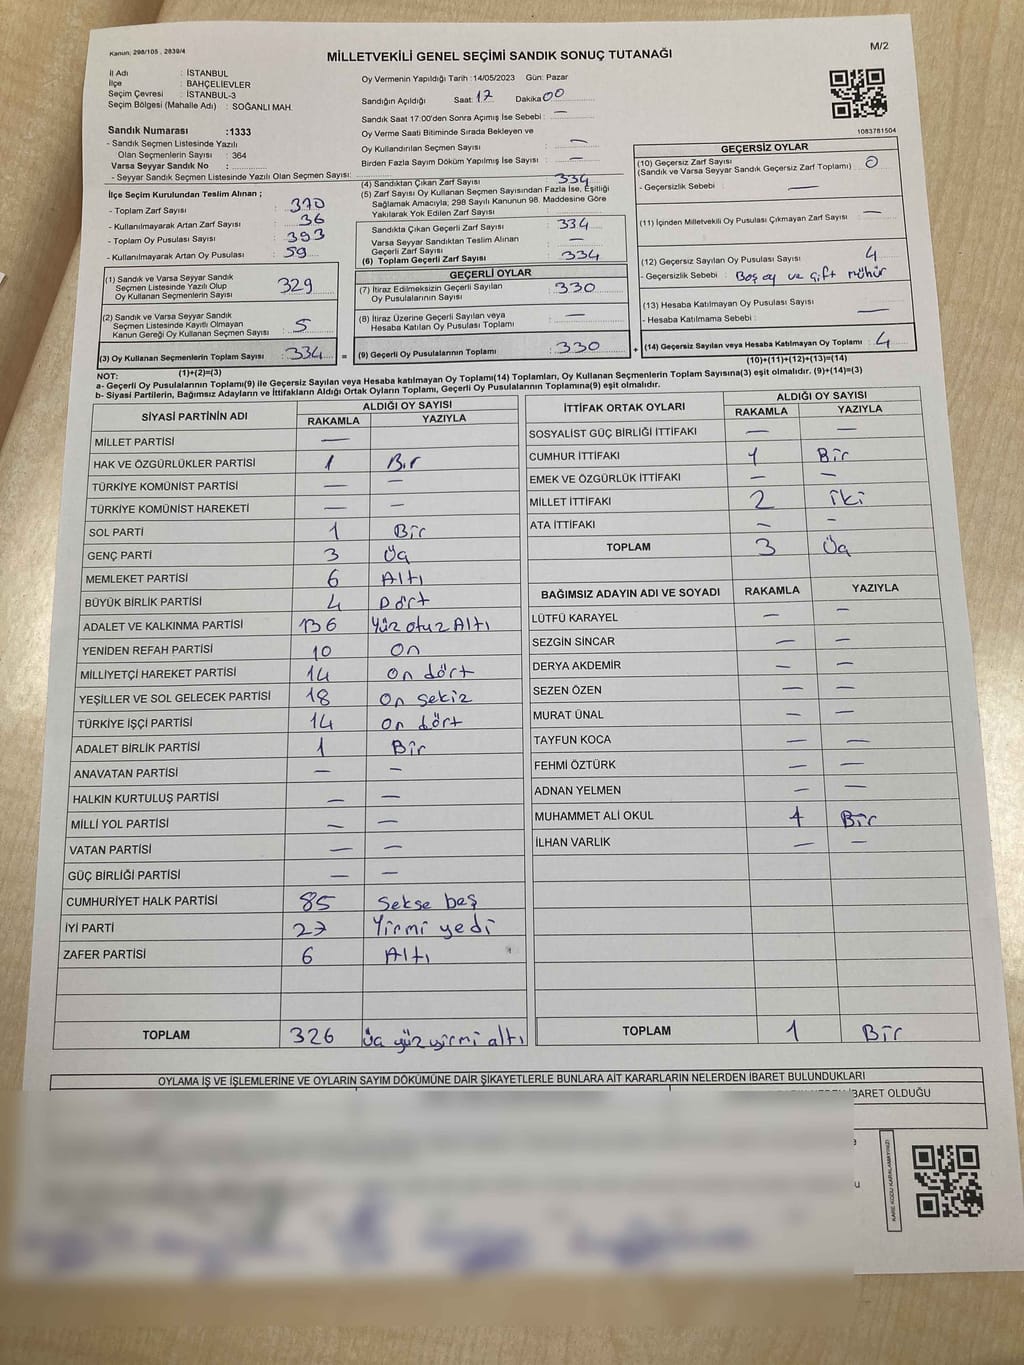 Kanun; 298/105 , 2839/4
MİLLETVEKİLİ GENEL SEÇİMİ SANDIK SONUÇ TUTANAĞI
M/2
İl Adı : İSTANBUL
İlçe : BAHÇELİEVLER
Seçim Çevresi : İSTANBUL-3
Seçim Bölgesi (Mahalle Adı) : SOĞANLI MAH.
Oy Vermenin Yapıldığı Tarih :14/05/2023 Gün: Pazar
Sandığın Açıldığı Saat: 17 Dakika 00
Sandık Saat 17:00'den Sonra Açımış İse Sebebi : —
Oy Verme Saati Bitiminde Sırada Bekleyen ve
Oy Kullandırılan Seçmen Sayısı : —
Birden Fazla Sayım Döküm Yapılmış İse Sayısı : —
1083781504
Sandık Numarası :1333
- Sandık Seçmen Listesinde Yazılı
Olan Seçmenlerin Sayısı : 364
Varsa Seyyar Sandık No :
- Seyyar Sandık Seçmen Listesinde Yazılı Olan Seçmen Sayısı:
İlçe Seçim Kurulundan Teslim Alınan ;
- Toplam Zarf Sayısı : 370
- Kullanılmayarak Artan Zarf Sayısı : 36
- Toplam Oy Pusulası Sayısı : 393
- Kullanılmayarak Artan Oy Pusulası : 59
(1) Sandık ve Varsa Seyyar Sandık
Seçmen Listesinde Yazılı Olup
Oy Kullanan Seçmenlerin Sayısı : 329
(2) Sandık ve Varsa Seyyar Sandık
Seçmen Listesinde Kayıtlı Olmayan
Kanun Gereği Oy Kullanan Seçmen Sayısı : 5
(3) Oy Kullanan Seçmenlerin Toplam Sayısı : 334 =
(1)+(2)=(3)
(4) Sandıktan Çıkan Zarf Sayısı : 334
(5) Zarf Sayısı Oy Kullanan Seçmen Sayısından Fazla İse, Eşitliği
Sağlamak Amacıyla; 298 Sayılı Kanunun 98. Maddesine Göre
Yakılarak Yok Edilen Zarf Sayısı :
Sandıkta Çıkan Geçerli Zarf Sayısı : 334
Varsa Seyyar Sandıktan Teslim Alınan
Geçerli Zarf Sayısı : —
(6) Toplam Geçerli Zarf Sayısı : 334
GEÇERLİ OYLAR
(7) İtiraz Edilmeksizin Geçerli Sayılan
Oy Pusulalarının Sayısı : 330
(8) İtiraz Üzerine Geçerli Sayılan veya
Hesaba Katılan Oy Pusulası Toplamı : —
(9) Geçerli Oy Pusulalarının Toplamı : 330 +
GEÇERSİZ OYLAR
(10) Geçersiz Zarf Sayısı
(Sandık ve Varsa Seyyar Sandık Geçersiz Zarf Toplamı) : 0
- Geçersizlik Sebebi : —
(11) İçinden Milletvekili Oy Pusulası Çıkmayan Zarf Sayısı : —
(12) Geçersiz Sayılan Oy Pusulası Sayısı : 4
- Geçersizlik Sebebi : Boş oy ve çift mühür
(13) Hesaba Katılmayan Oy Pusulası Sayısı :
- Hesaba Katılmama Sebebi : —
(14) Geçersiz Sayılan veya Hesaba Katılmayan Oy Toplamı : 4
(10)+(11)+(12)+(13)=(14)
NOT:
a- Geçerli Oy Pusulalarının Toplamı(9) ile Geçersiz Sayılan veya Hesaba katılmayan Oy Toplamı(14) Toplamları, Oy Kullanan Seçmenlerin Toplam Sayısına(3) eşit olmalıdır. (9)+(14)=(3)
b- Siyasi Partilerin, Bağımsız Adayların ve İttifakların Aldığı Ortak Oyların Toplamı, Geçerli Oy Pusulalarının Toplamına(9) eşit olmalıdır.
SİYASİ PARTİNİN ADI ALDIĞI OY SAYISI
RAKAMLA YAZIYLA
MİLLET PARTİSİ —
HAK VE ÖZGÜRLÜKLER PARTİSİ 1 Bir
TÜRKİYE KOMÜNİST PARTİSİ — —
TÜRKİYE KOMÜNİST HAREKETİ — —
SOL PARTİ 1 Bir
GENÇ PARTİ 3 Üç
MEMLEKET PARTİSİ 6 Altı
BÜYÜK BİRLİK PARTİSİ 4 Dört
ADALET VE KALKINMA PARTİSİ 136 Yüz otuz Altı
YENİDEN REFAH PARTİSİ 10 On
MİLLİYETÇİ HAREKET PARTİSİ 14 On dört
YEŞİLLER VE SOL GELECEK PARTİSİ 18 On sekiz
TÜRKİYE İŞÇİ PARTİSİ 14 On dört
ADALET BİRLİK PARTİSİ 1 Bir
ANAVATAN PARTİSİ — —
HALKIN KURTULUŞ PARTİSİ — —
MİLLİ YOL PARTİSİ — —
VATAN PARTİSİ — —
GÜÇ BİRLİĞİ PARTİSİ — —
CUMHURİYET HALK PARTİSİ 85 Sekse beş
İYİ PARTİ 27 Yirmi yedi
ZAFER PARTİSİ 6 Altı
TOPLAM 326 Üç yüz yirmi altı
İTTİFAK ORTAK OYLARI ALDIĞI OY SAYISI
RAKAMLA YAZIYLA
SOSYALİST GÜÇ BİRLİĞİ İTTİFAKI — —
CUMHUR İTTİFAKI 1 Bir
EMEK VE ÖZGÜRLÜK İTTİFAKI — —
MİLLET İTTİFAKI 2 İki
ATA İTTİFAKI — —
TOPLAM 3 Üç
BAĞIMSIZ ADAYIN ADI VE SOYADI RAKAMLA YAZIYLA
LÜTFÜ KARAYEL — —
SEZGİN SİNCAR — —
DERYA AKDEMİR — —
SEZEN ÖZEN — —
MURAT ÜNAL — —
TAYFUN KOCA — —
FEHMİ ÖZTÜRK — —
ADNAN YELMEN — —
MUHAMMET ALİ OKUL 1 Bir
İLHAN VARLIK — —
TOPLAM 1 Bir
OYLAMA İŞ VE İŞLEMLERİNE VE OYLARIN SAYIM DÖKÜMÜNE DAİR ŞİKAYETLERLE BUNLARA AİT KARARLARIN NELERDEN İBARET BULUNDUKLARI
İBARET OLDUĞU
KARE KODU KARALAMAYINIZ!